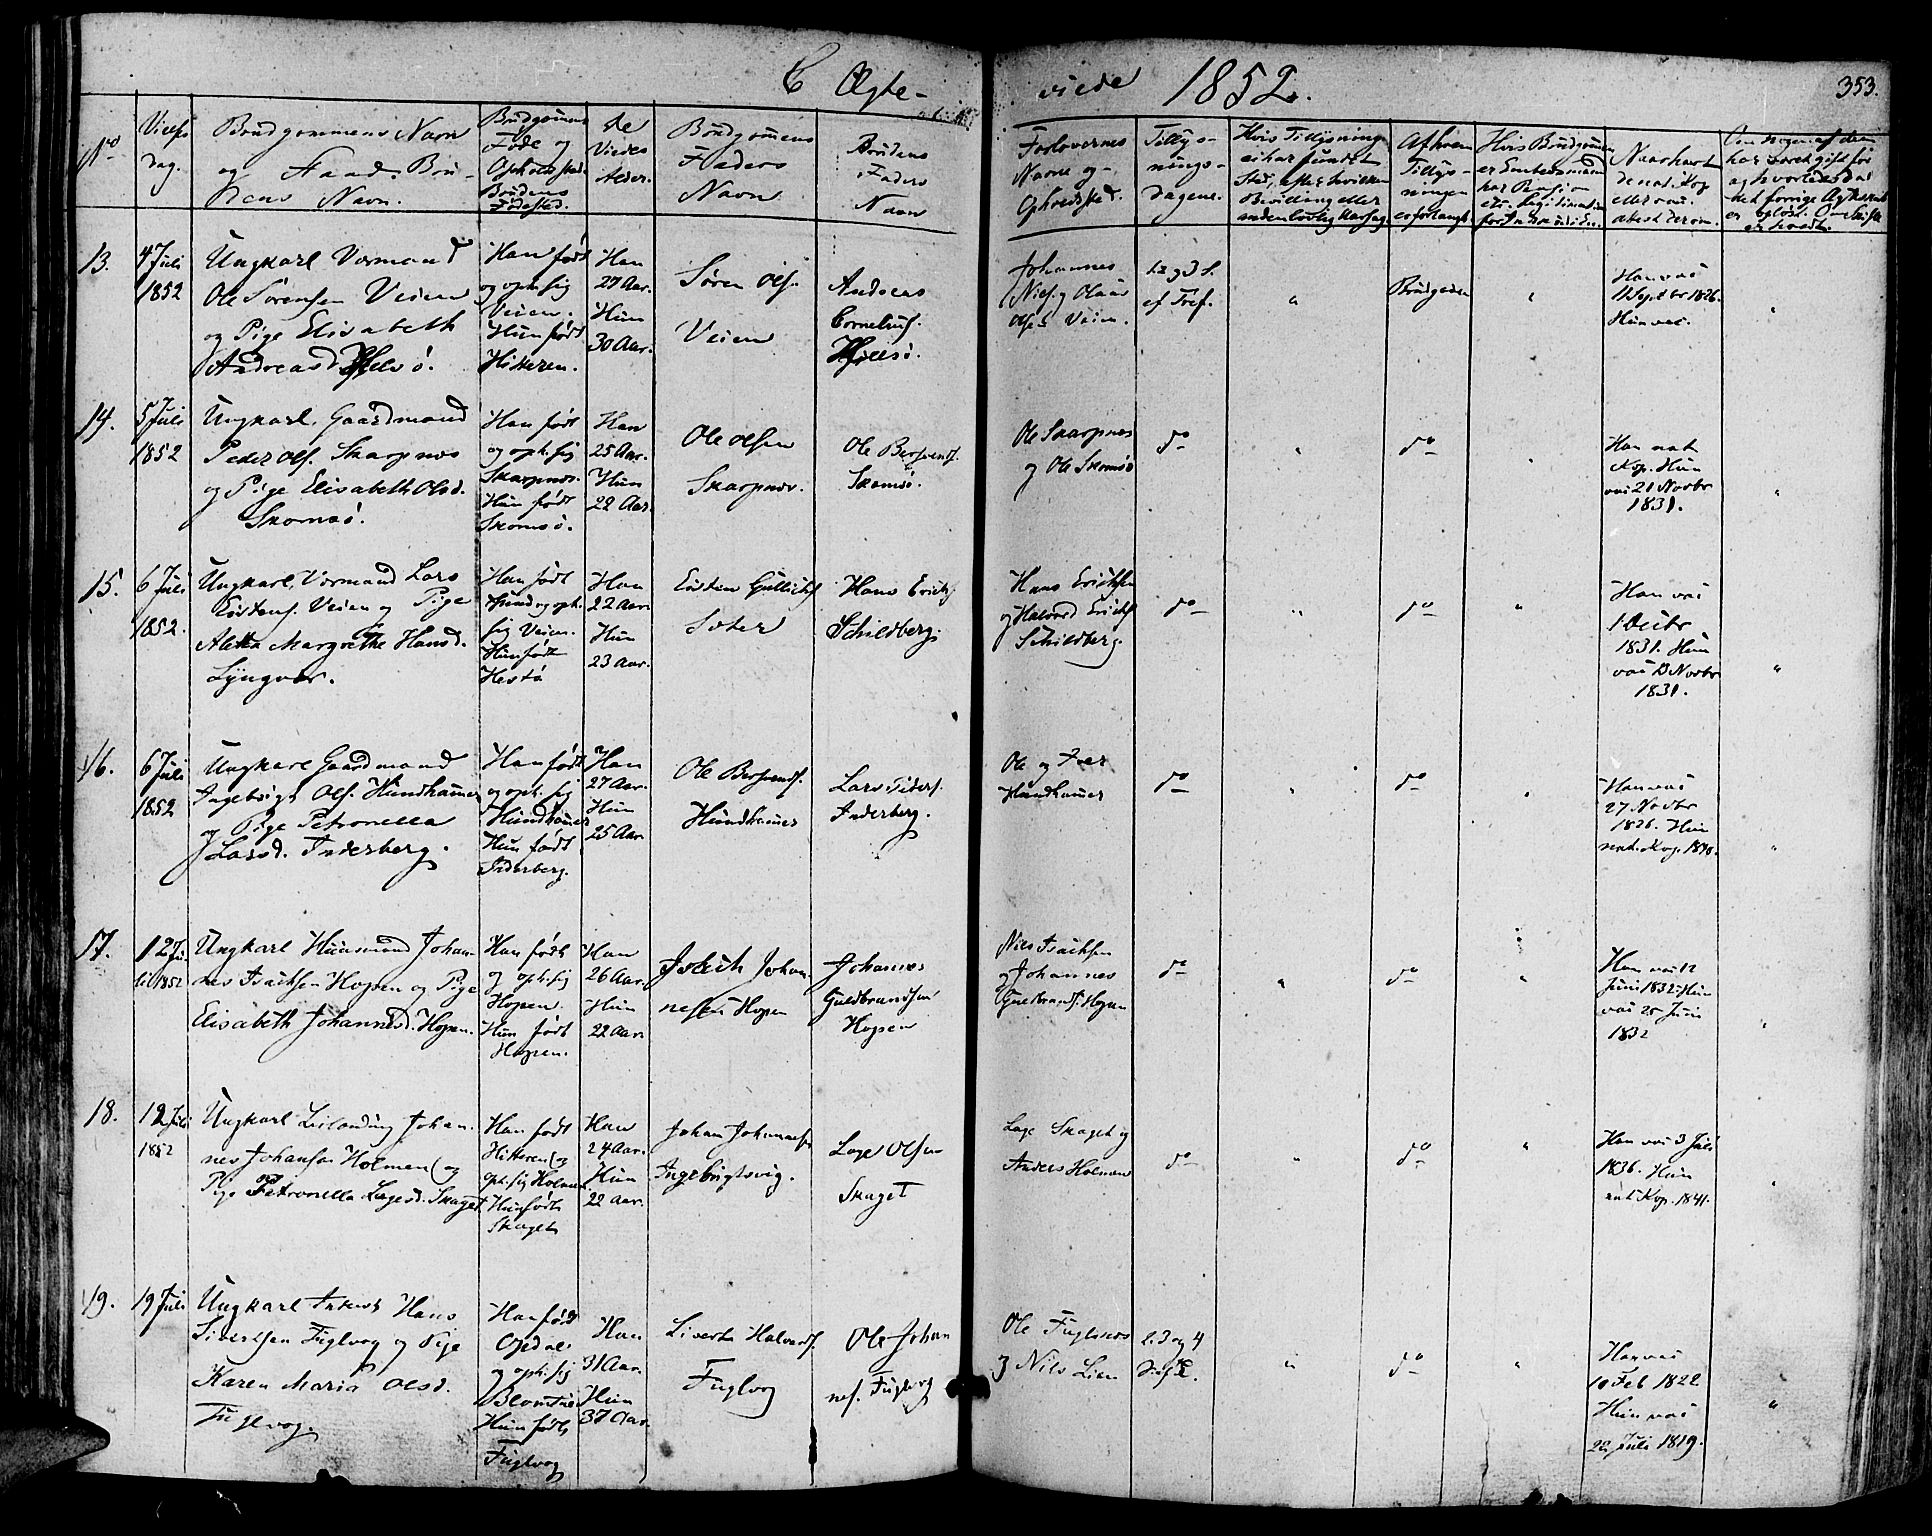 C Ægte-
viede 1852.
353.
No
Vielses
Dag.
Brudgommens Navn
og Faad. Bru-
dens Navn.
Brudgommens
Føde og
Opholdssted.
Brudens
Fødested.
De
Viedes
Alder.
Brudgommens
Faders
Navn
Brudens
Faders
Navn
Forlovernes
Navne og
Opholdssted.
Tillys-
nings-
Dagene.
Hvis Tillysning
ei har fundet
Sted, efter hvilken
Bevilling eller
anden lovlig Aarsag
Af hvem
Tillys-
ningen
er forlangt.
Hvis Brudgommen
er Embedsmand
har Pension
Naar havt
de nat. Kop.
eller vac.
attest derom.
Om nogen af dem
har været gift før
og hvorledes da
det forrige Ægteskab
er opløst. Om Skifte
er holdt.
13.
4 Juli
1852
Ungkarl Vormand
Ole Sørensen Veien
og Pige Elisabeth
Andreasd.
Han født
og oph. sig
Veien.
Hun født
Hitteren.
Han
27 Aar.
Hun
30 Aar.
Søren Ols.
Veien
Andreas
Cornelius.
Johannes
Niels. og Olaus
Olsen Veien.
2 og 3 S.
ef. Tref.
"
Brudgommen
"
Han vac.
11 Septbr 1826.
Hun vac.
"
14.
5 Juli
1852
Ungkarl, Gaardmand
Peder Ols. Skarpnes
og Pige Elisabeth Olsd.
Skomsø.
Han født
og oph. sig
Skarpnes.
Hun født
Skomsø.
Han
25 Aar.
Hun
22 Aar.
Ole Olsen
Skarpnes.
Ole Bersvends.
Skomsø.
Ole Skarpnes
og Ole Skomsø
do
"
do
Han nat.
Kop. Hun
vac 21 Novbr
1831.
"
15.
6 Juli
1852.
Ungkarl, Vormand Lars
Eistens. Veien og Pige
Aletta Margrethe Hansd.
Lyngvær.
Han født
og oph.
sig Veien.
Hun født
Hestø
Han
22 Aar.
Hun
23 Aar.
Eisten Gullichs.
Hans Erichs.
Schildberg.
Hans Erichsen
og Halvard Erichs.
Schildberg.
do
"
do
"
Han vac
1 Decbr
1831. Hun
vac 13 Novbr
1831.
"
16.
6 Juli
1852
Ungkarl Gaardmand
Ingebrigt Ols. Hundhamer
og Pige Petronella
Larsd. Inderberg.
Han født
og oph. sig
Hundhamer
Hun født
Inderberg.
Han
27 Aar.
Hun
25 Aar.
Ole Bersvends.
Hundhamer
Lars Peders.
Inderberg.
Ole og Iver
Hundhamer
do
"
do
"
Han vac
27 Novbr
1826. Hun
nat. Kop. 1840.
"
17.
12 Ju-
li 1852
Ungkarl Huusmand Johan-
nes Isachsen Hopen og Pige
Elisabeth Johannesd. Hopen.
Han født
og oph. sig
Hopen.
Hun født
Hopen.
Han
26 Aar.
Hun
22 Aar.
Isach Johan-
nesen Hopen
Johannes
Guldbrandsen
Hopen
Niels Isachsen
og Johannes
Guldbrands. Hopen
do
"
do
"
Han vac 12
Juni 1832. Hun
vac 25 Juni
1832
"
18.
12 Juli
1852
Ungkarl Leilænding Johan-
nes Johansen Holmen og
Pige Petronella Lagesd. Skaget
Han født
Hitteren og
oph. sig Holmen
Hun født
Skaget
Han
24 Aar.
Hun
22 Aar.
Johan Johannes.
Ingebrigtsvig.
Lage Olsen
Skaget
Lage Skaget og
Anders Holmen
do
"
do
"
Han vac 3 Juli
1836. Hun
nat. Kop. 1841.
"
19.
19 Juli
Ungkarl Hans
Sivertsen Fuglvog og Pige
Karen Maria Olsd.
Fuglvog.
Han født
Opdal
og oph. sig
Hun født
Fuglvog
Han
31 Aar.
Hun
37 Aar.
Sivert Halvords.
Fuglvog
Ole Johan-
nes. Fuglvog
Ole Fuglsnes
og Nils Lien
2. 3 og 4
"
do
"
Han vac
10 Feb 1822
Hun vac
22 Juli 1819.
"